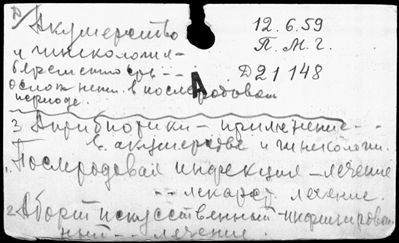 Акушерство
12.6.59
и гинекология -
П. М. Г.
беременность - -
Д21148
А
осложнен. в послеродовом
периоде.
3 Антибиотики - применение - -
в акушерстве и гинекологии.
1. Послеродовая инфекция - лечение
- - лекарст. лечение.
2 Аборт искусственный - инфицирован
ный - - лечение.